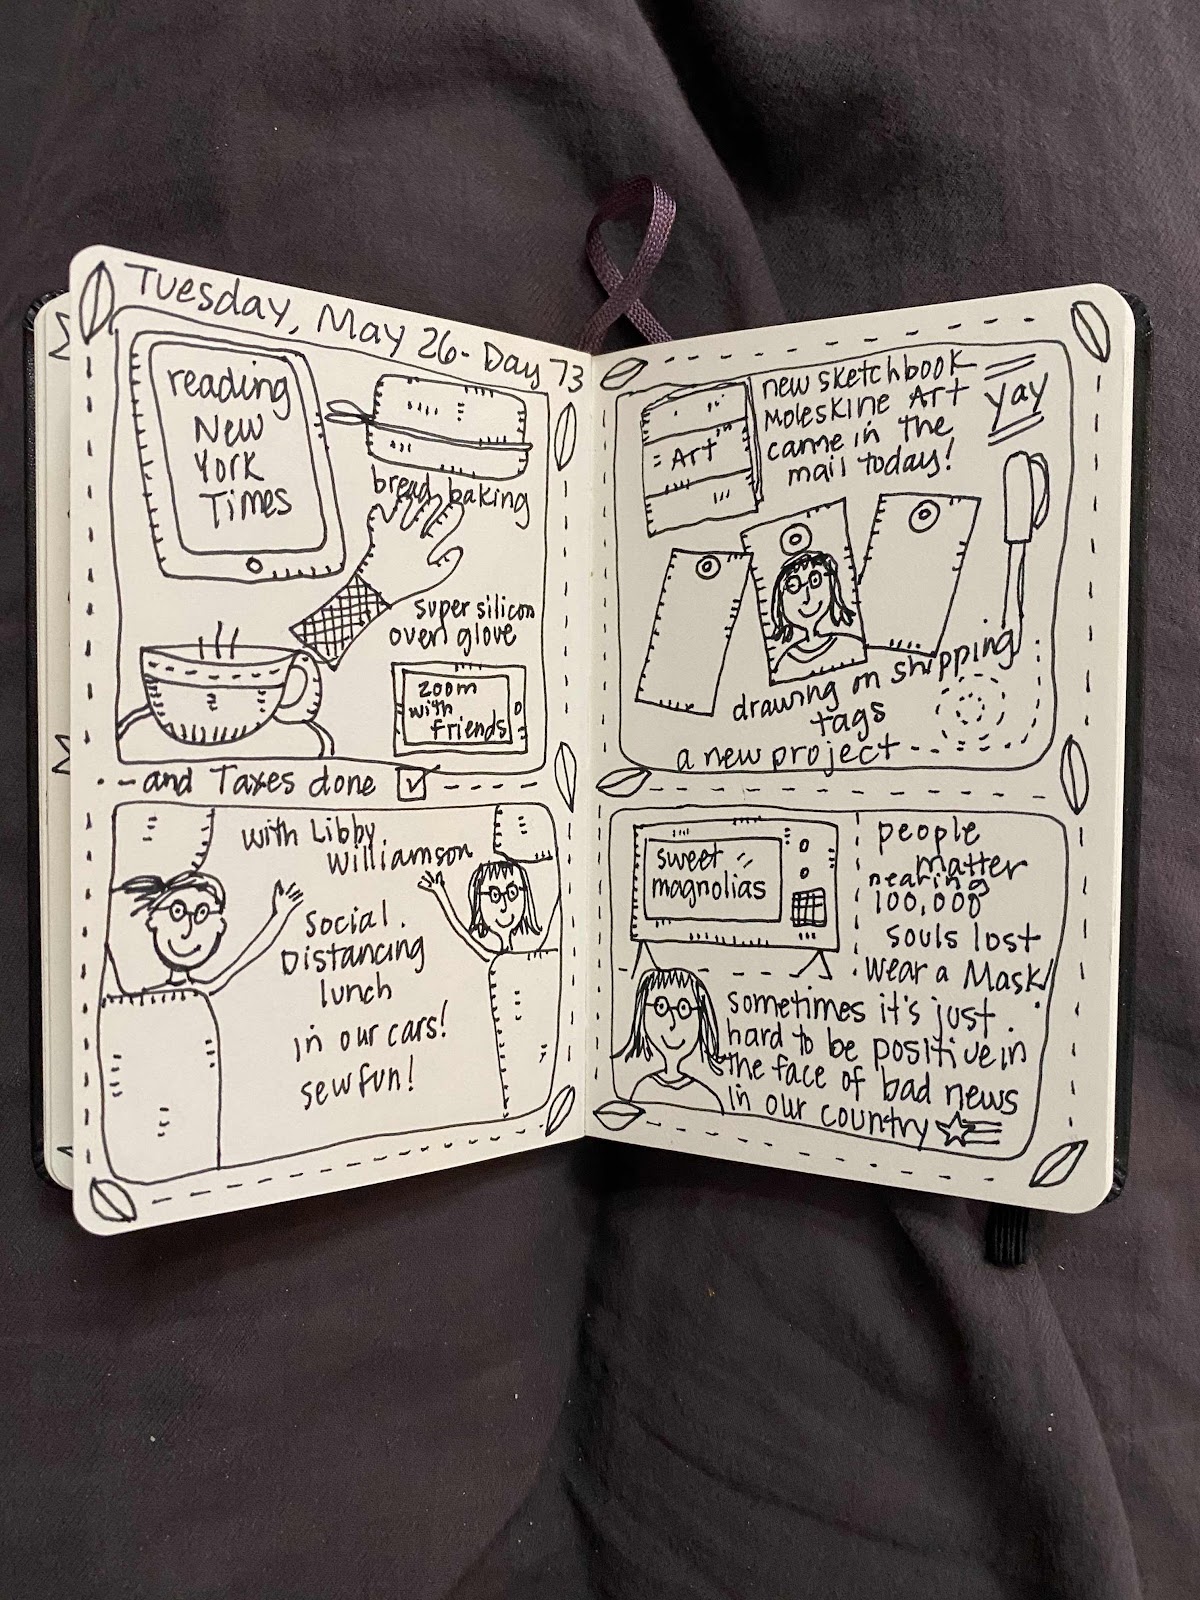 Tuesday, May 26 - Day 73
reading
New
York
Times
bread baking
super silicon
oven glove
zoom
with
friends
and Taxes done
with Libby
Williamson
Social
Distancing
lunch
in our cars!
sew fun!
new sketchbook
Moleskine Art
came in the
mail today!
yay
Art
drawing on shipping
tags
a new project
sweet
magnolias
people
matter
nearing
100,000
souls lost
wear a Mask!
sometimes it's just
hard to be positive in
the face of bad news
in our country